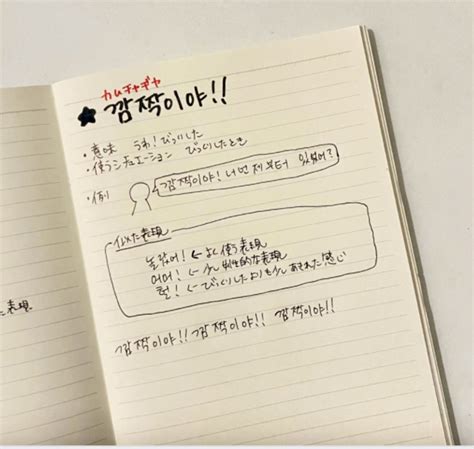 カムチャギヤ
★ 깜짝이야!!
・意味 うわ!びっくりした
・使うシチュエーション びっくりしたとき
・例
깜짝이야! 너 언제부터 있었어?
似た表現
놀랐어! ← よく使う表現
어머! ← 少し女性的な表現
헐! ← びっくりしたよりも少しあきれた感じ
깜짝이야!! 깜짝이야!! 깜짝이야!!
表現